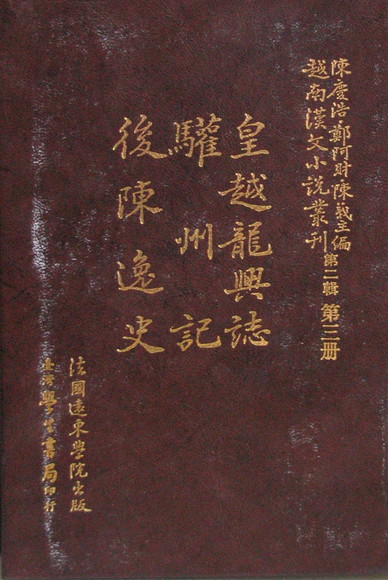 陳慶浩鄭阿財陳義主編
越南漢文小說叢刊 第二輯 第三册
皇越龍興誌
驩州記
後陳逸史
法國遠東學院出版
臺灣學生書局印行